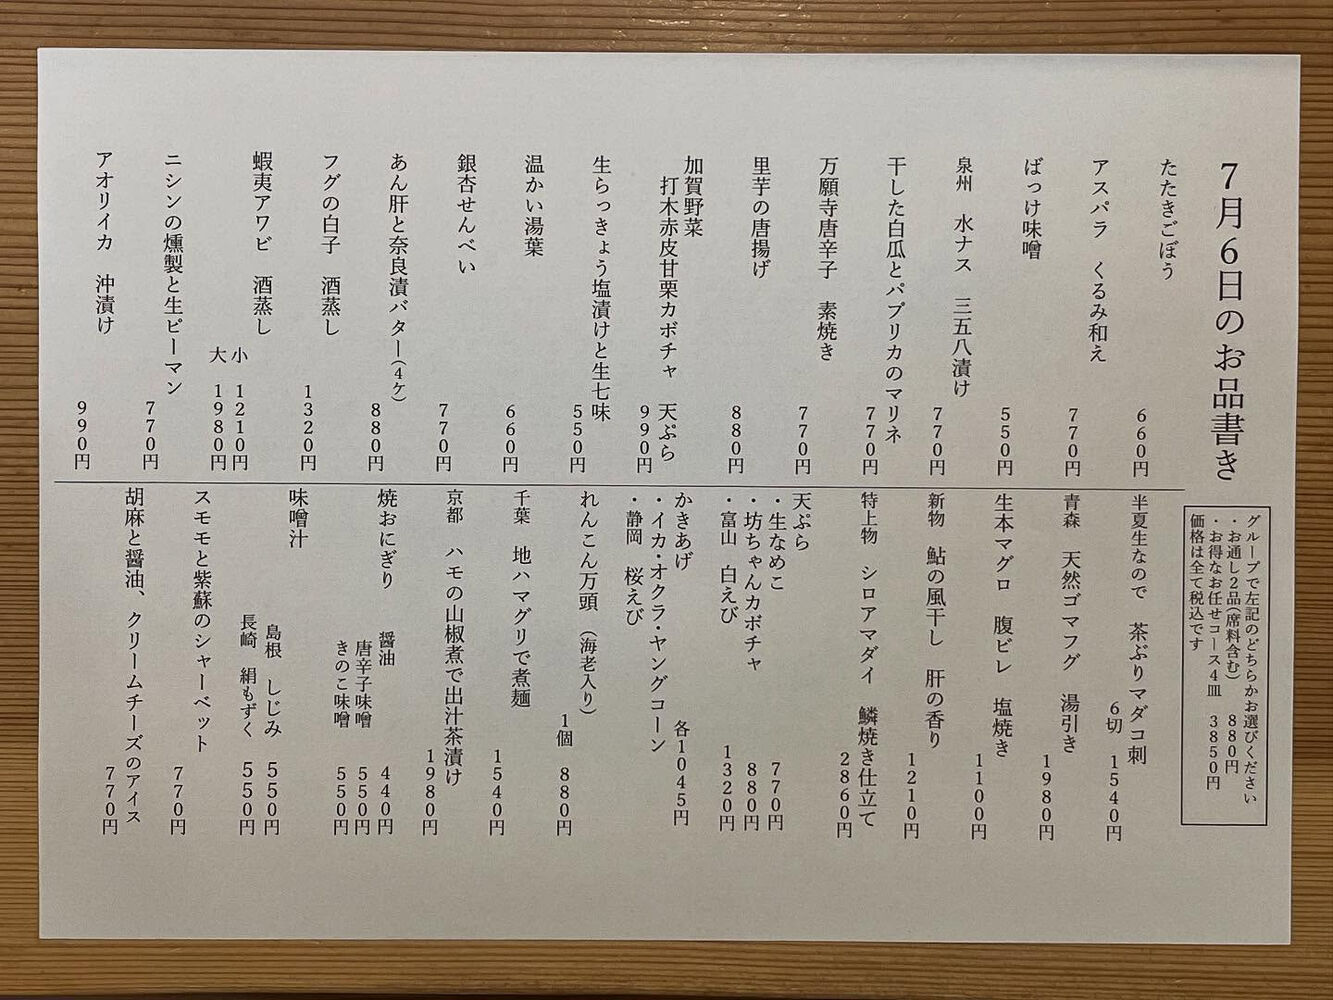 7月6日のお品書き
グループで左記のどちらかお選びください
・お通し2品(席料含む) 880円
・お得なお任せコース4皿 3850円
価格は全て税込です
たたきごぼう 660円
アスパラ くるみ和え 770円
ばっけ味噌 550円
泉州 水ナス 三五八漬け 770円
干した白瓜とパプリカのマリネ 770円
万願寺唐辛子 素焼き 770円
里芋の唐揚げ 880円
加賀野菜
打木赤皮甘栗カボチャ 天ぷら 990円
生らっきょう塩漬けと生七味 550円
温かい湯葉 660円
銀杏せんべい 770円
あん肝と奈良漬バター(4ケ) 880円
フグの白子 酒蒸し 1320円
蝦夷アワビ 酒蒸し
小 1210円
大 1980円
ニシンの燻製と生ピーマン 770円
アオリイカ 沖漬け 990円
半夏生なので 茶ぶりマダコ刺
6切 1540円
青森 天然ゴマフグ 湯引き 1980円
生本マグロ 腹ビレ 塩焼き 1100円
新物 鮎の風干し 肝の香り 1210円
特上物 シロアマダイ 鱗焼き仕立て 2860円
天ぷら
・生なめこ 770円
・坊ちゃんカボチャ 880円
・富山 白えび 1320円
かきあげ 各1045円
・イカ・オクラ・ヤングコーン
・静岡 桜えび
れんこん万頭 (海老入り)
1個 880円
千葉 地ハマグリで煮麺 1540円
京都 ハモの山椒煮で出汁茶漬け 1980円
焼おにぎり 醤油 440円
唐辛子味噌 550円
きのこ味噌 550円
味噌汁
島根 しじみ 550円
長崎 絹もずく 550円
スモモと紫蘇のシャーベット 770円
胡麻と醤油、クリームチーズのアイス 770円